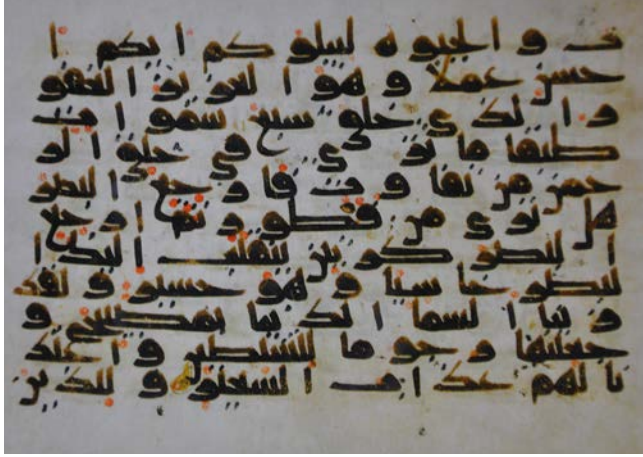 ت و الحيوة ليبلو كم ا يكم ا
حسن عملا و هو ا لعز يز ا لغفو
ر ا لذ ي خلق سبع سمو ا ت
طبقا ما تر ي في خلق ا لر
حمن من تفا و ت فا ر جع ا لبصر
هل تر ي من فطور ثم ا ر جع
ا لبصر كر تين ينقلب ا ليك ا
لبصر خا سيا و هو حسير و لقد
ز ينا ا لسما ا لد نيا بمصبيح و
جعلنها ر جو ما للشيطين و ا عتد
نا لهم عذ ا ب ا لسعير و للذ ين